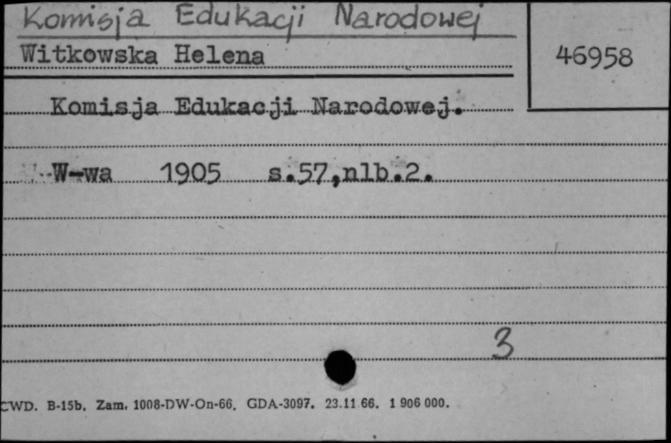 Komisja Edukacji Narodowej
Witkowska Helena
46958
Komisja Edukacji Narodowej.
W-wa 1905 s.57,nlb.2.
3
CWD. B-15b. Zam. 1008-DW-On-66. GDA-3097. 23.11 66. 1 906 000.